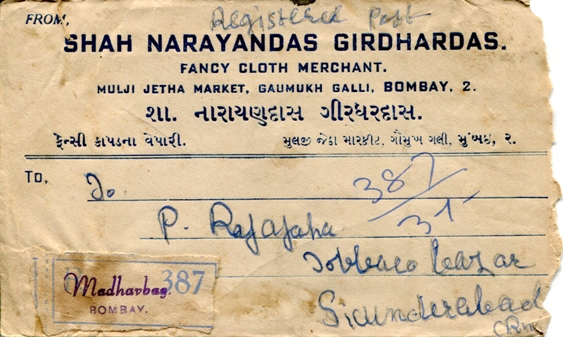 Registered Post
FROM,
SHAH NARAYANDAS GIRDHARDAS.
FANCY CLOTH MERCHANT.
MULJI JETHA MARKET, GAUMUKH GALLI, BOMBAY, 2.
શા. નારાયણદાસ ગીરધરદાસ.
ફેન્સી કાપડના વેપારી.
મુલજી જેઠા મારકીટ, ગૌમુખ ગલી, મુંબઇ, ર.
TO,
To.
387
P. Rajajaha
Tobbaco bazar
Madharbag. 387
BOMBAY.
Scunderabad